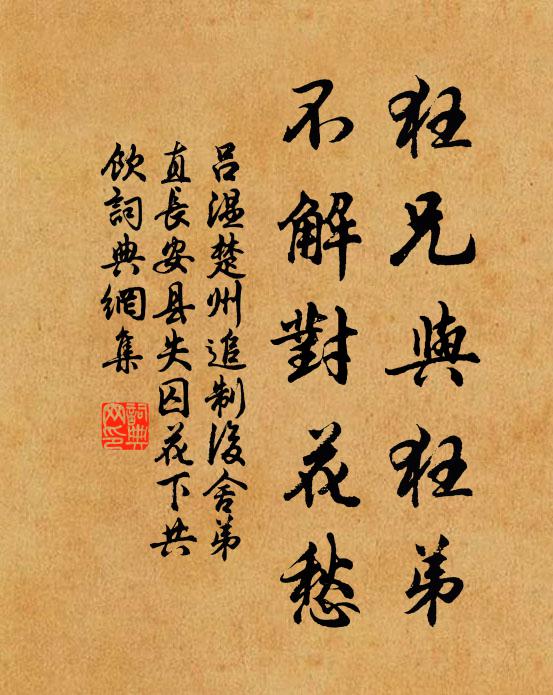 狂兄與狂弟
不解對花愁
吕温楚州追制後舍弟
直長安县失囚花下共
飲詞典網集
詞典
网印